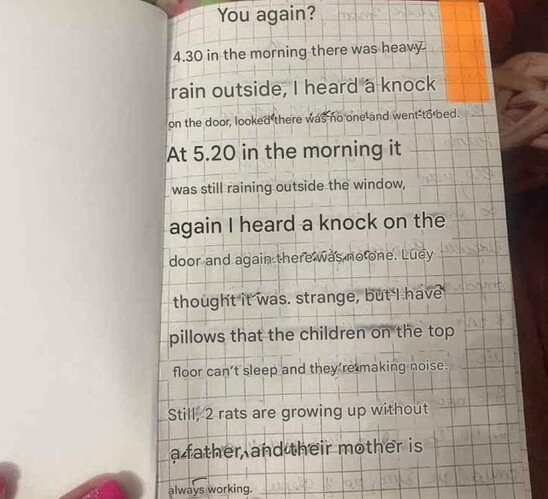 You again?
4.30 in the morning there was heavy
rain outside, I heard a knock
on the door, looked there was no one and went to bed.
At 5.20 in the morning it
was still raining outside the window,
again I heard a knock on the
door and again there was no one. Lucy
thought it was. strange, but I have
pillows that the children on the top
floor can't sleep and they're making noise.
Still, 2 rats are growing up without
a father, and their mother is
always working.